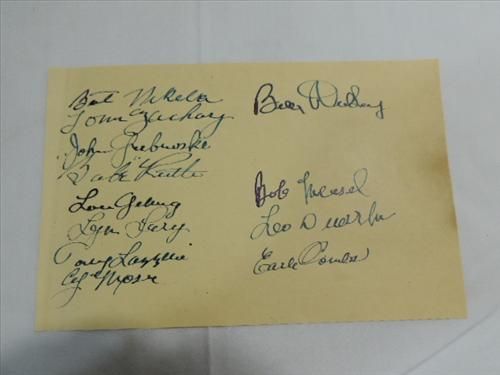 Tom Zachary
John Grabowski
"Babe" Ruth
Lou Gehrig
Lyn Lary
Tony Lazzeri
Cy Moore
Bill Dickey
Bob Meusel
Leo Durocher
Earle Combs